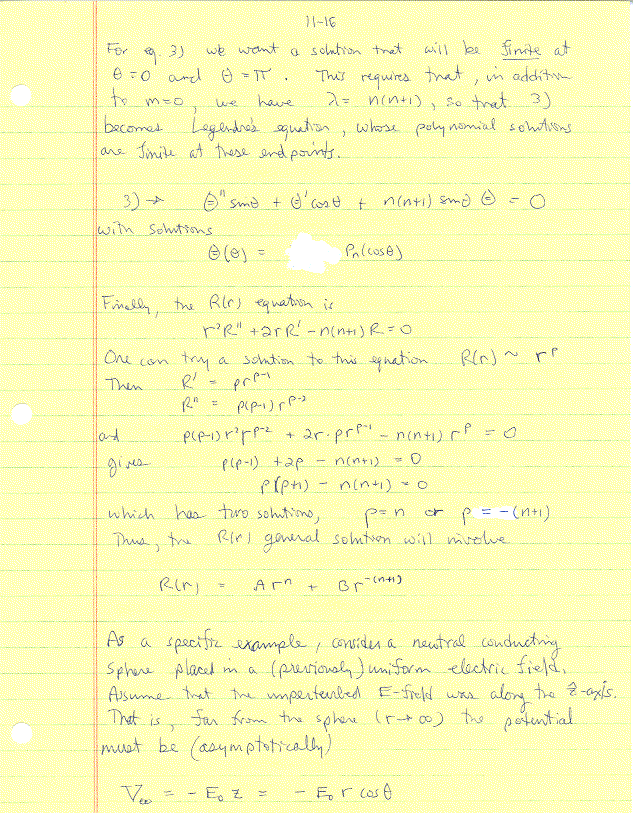 11-16
For eq. 3) we want a solution that will be finite at
θ=0 and θ=π. This requires that, in addition
to m=0, we have λ= n(n+1), so that 3)
becomes Legendre's equation, whose polynomial solutions
are finite at these endpoints.
3) → Θ'' sinθ + Θ' cosθ + n(n+1) sinθ Θ = 0
with solutions
Θ(θ) = Pn(cosθ)
Finally, the R(r) equation is
r²R'' + 2rR' - n(n+1)R = 0
One can try a solution to this equation R(r) ~ r^p
Then R' = pr^(p-1)
R'' = p(p-1)r^(p-2)
and p(p-1)r²r^(p-2) + 2r·pr^(p-1) - n(n+1)r^p = 0
gives p(p-1) + 2p - n(n+1) = 0
p(p+1) - n(n+1) = 0
which has two solutions, p=n or p = -(n+1)
Thus, the R(r) general solution will involve
R(r) = Ar^n + Br^-(n+1)
As a specific example, consider a neutral conducting
sphere placed in a (previously) uniform electric field.
Assume that the unperturbed E-field was along the ẑ-axis.
That is, far from the sphere (r→∞) the potential
must be (asymptotically)
V∞ = - E₀ z = - E₀ r cosθ